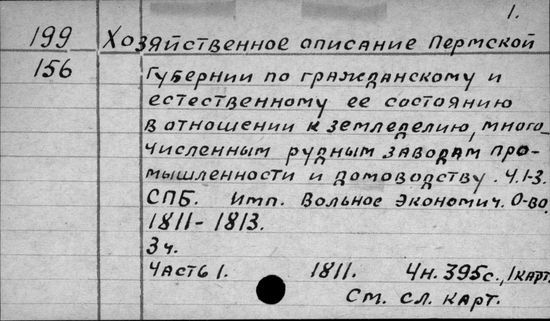 1.
199 Хозяйственное описание Пермской
156 Губернии по гражданскому и
естественному ее состоянию
в отношении к земледелию, много-
численным рудным заводам про-
мышленности и домоводству. Ч.1-3.
СПБ. Имп. Вольное Экономич. О-во.
1811-1813.
3 ч.
Часть 1. 1811. Чн. 395 с., 1 карт.
См. сл. карт.